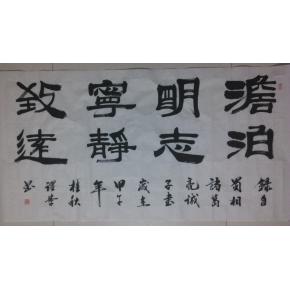 澹泊
明志
寧靜
致遠
錄自
蜀相
諸葛
亮誡
子書
歲在
甲午
年
桂秋